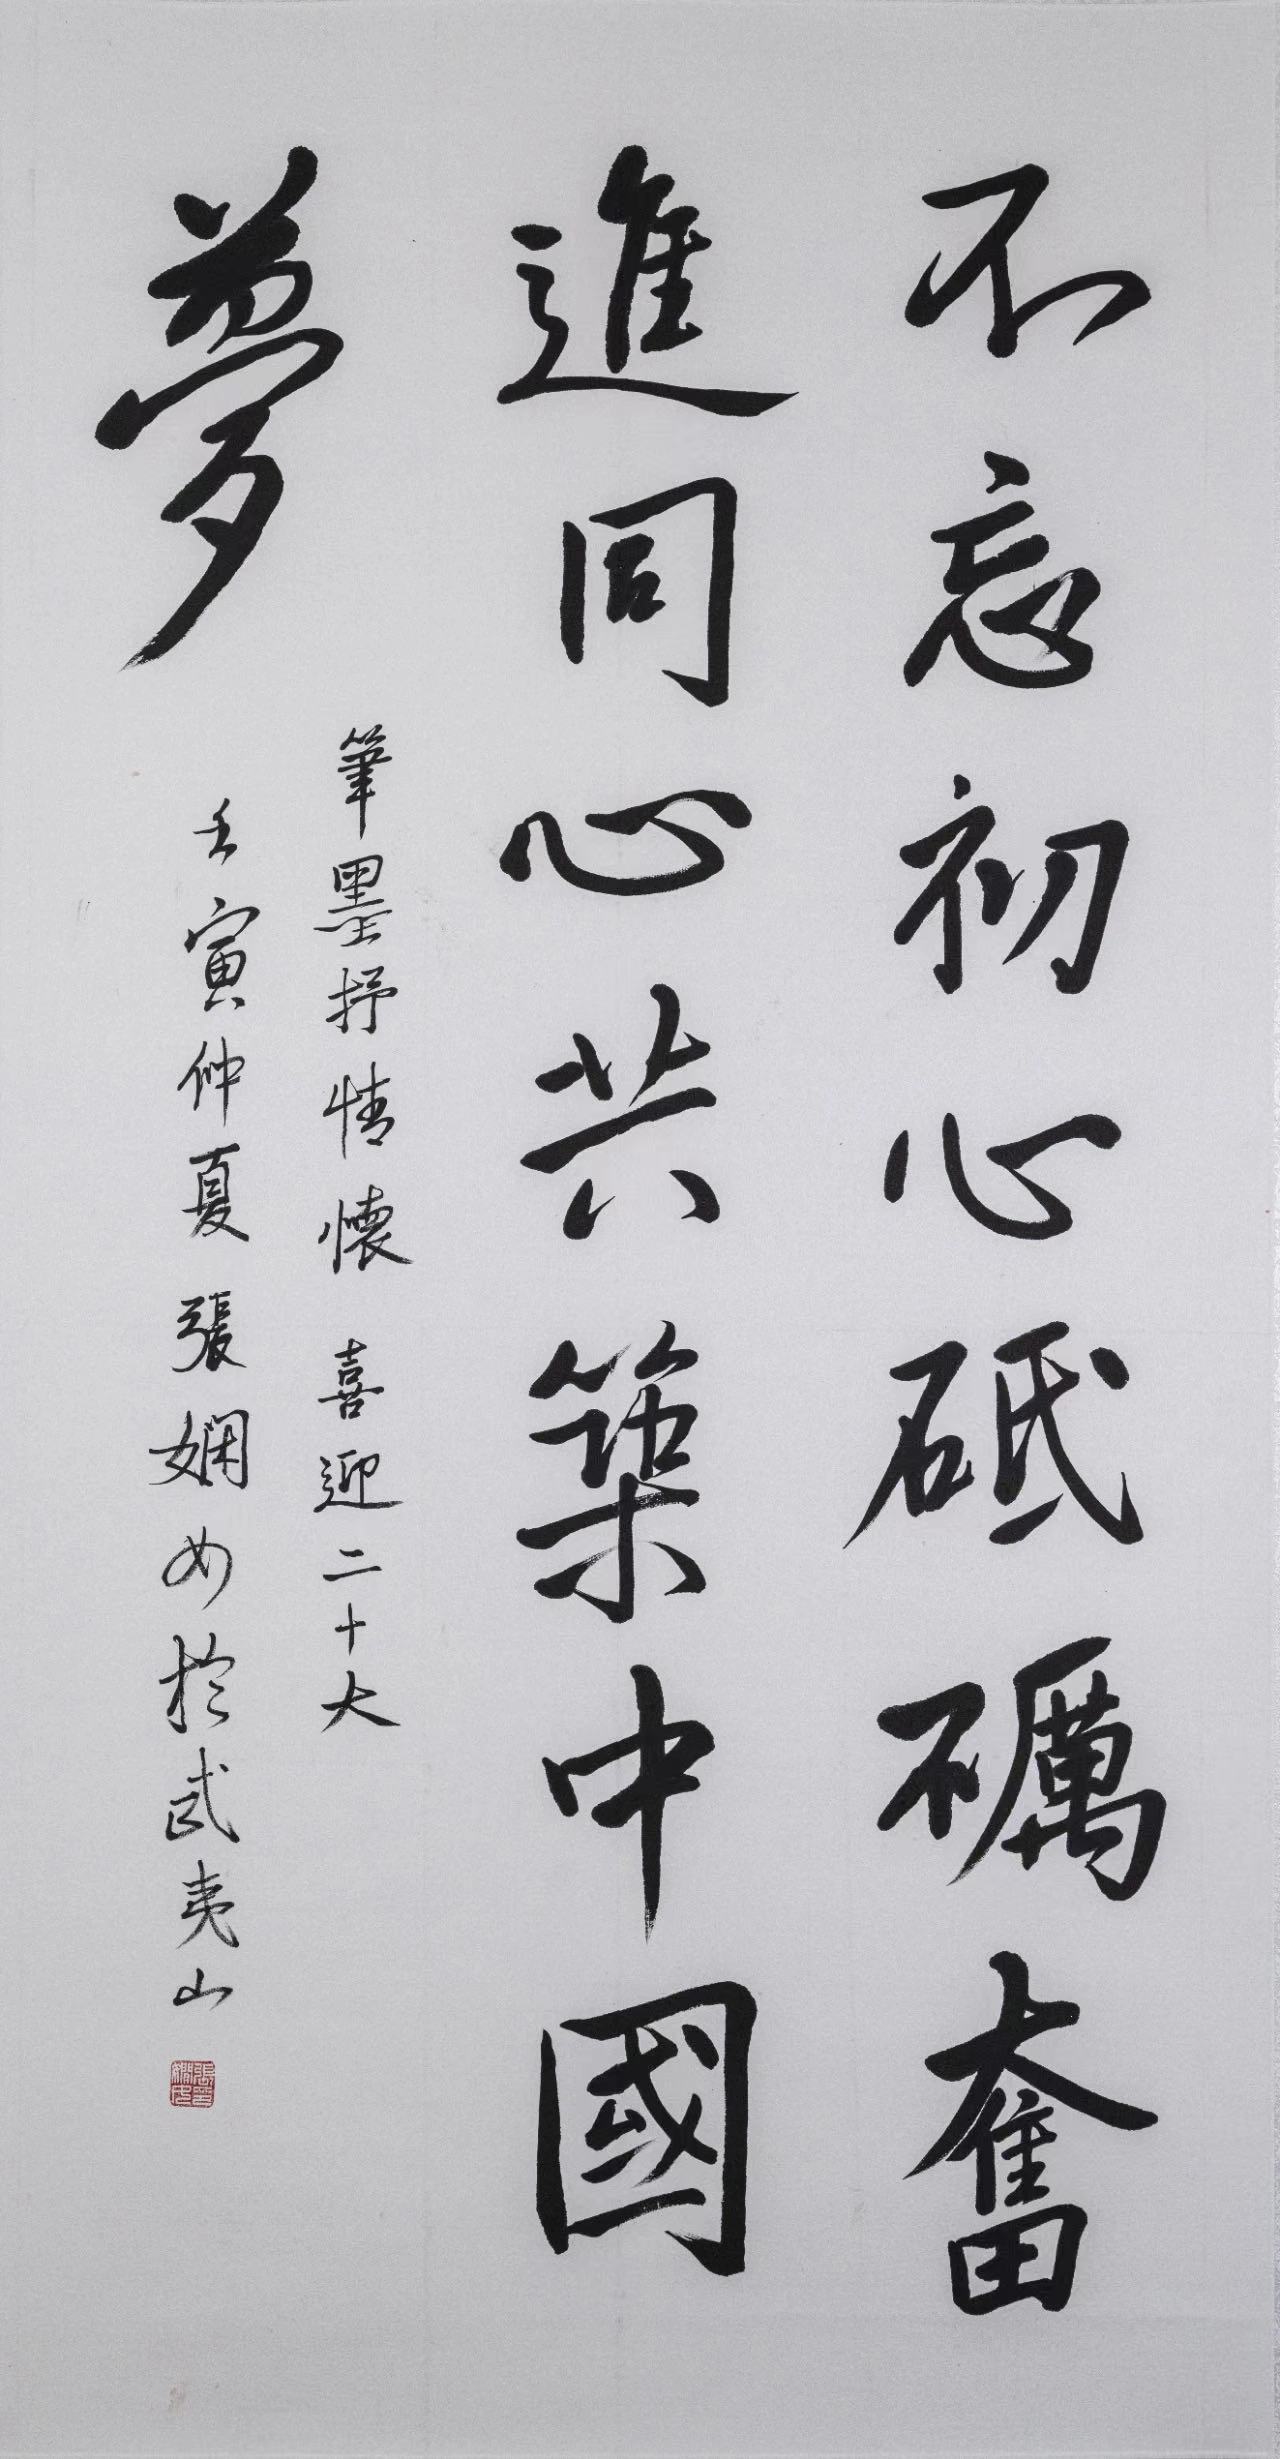 不忘初心砥礪奮
進同心共築中國
夢
筆墨抒情懷 喜迎二十大
壬寅仲夏張嫻女於武夷山
張嫻印